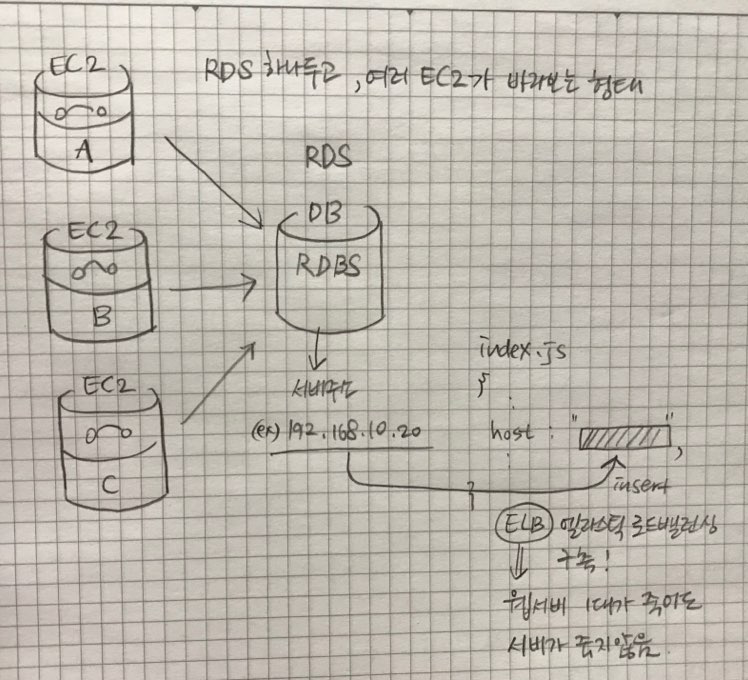 RDS 하나두고, 여러 EC2가 바라보는 형태
EC2
A
EC2
B
EC2
C
RDS
DB
RDBS
서버주소
(ex) 192.168.10.20
index.js
{
:
host : " ",
:
}
insert
ELB 엘라스틱 로드밸런싱
구축!
웹서버 1대가 죽어도
서버가 죽지않음.